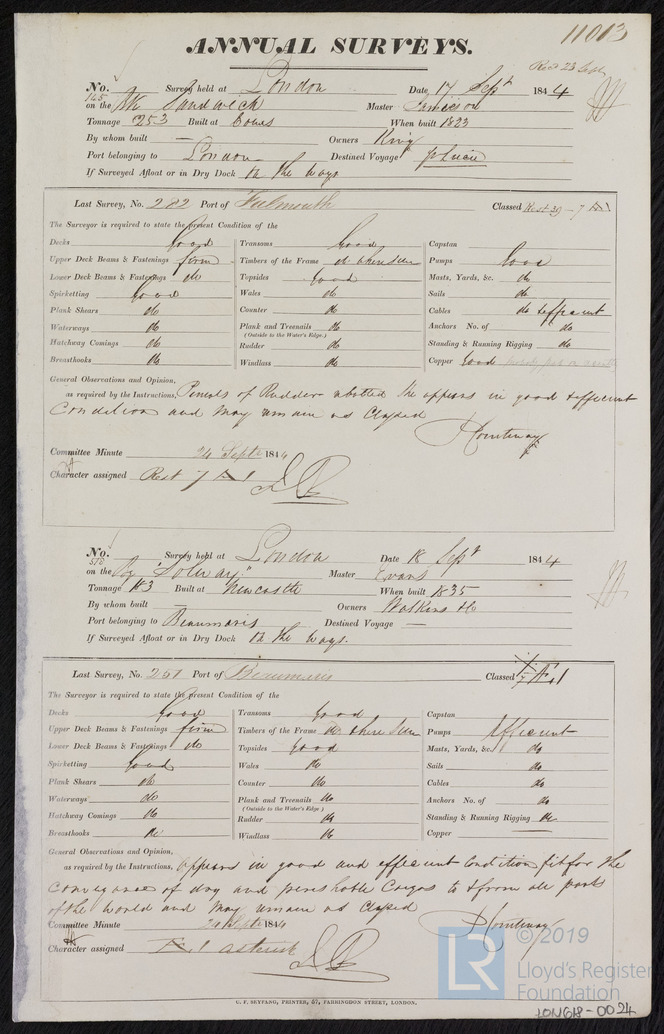 11013
ANNUAL SURVEYS.
Recd 23 Sept
No. 165 Survey held at London Date 17 Septr 1844
on the Bk Sandwich Master Jameson
Tonnage 253 Built at Cowes When built 1823
By whom built — Owners King
Port belonging to London Destined Voyage
If Surveyed Afloat or in Dry Dock In the ways
Last Survey, No. 282 Port of Falmouth Classed Rest 39 - 7 A1
The Surveyor is required to state the present Condition of the
Decks Good Transoms Good Capstan
Upper Deck Beams & Fastenings firm Timbers of the Frame do where seen Pumps Good
Lower Deck Beams & Fastenings do Topsides Good Masts, Yards, &c. do
Spirketting Good Wales do Sails do
Plank Shears do Counter do Cables do & efficient
Waterways do Plank and Treenails do Anchors No. of do
(Outside to the Water's Edge.)
Hatchway Comings do Rudder do Standing & Running Rigging do
Breasthooks do Windlass do Copper Good
General Observations and Opinion,
as required by the Instructions, Pintels of Rudder rebolted She appears in good & efficient
Condition and may remain as Classed
P Courtenay
Committee Minute 24 Septr 1844
Character assigned Rest 7 A 1
No. 510 Survey held at London Date 18 Septr 1844
on the Bg "Solway" Master Evans
Tonnage 183 Built at Newcastle When built 1835
By whom built — Owners Watkins &c
Port belonging to Beaumaris Destined Voyage —
If Surveyed Afloat or in Dry Dock In the ways.
Last Survey, No. 251 Port of Beaumaris Classed Æ 1
The Surveyor is required to state the present Condition of the
Decks Good Transoms Good Capstan
Upper Deck Beams & Fastenings firm Timbers of the Frame do where seen Pumps Efficient
Lower Deck Beams & Fastenings do Topsides Good Masts, Yards, &c. do
Spirketting Good Wales do Sails do
Plank Shears do Counter do Cables do
Waterways do Plank and Treenails do Anchors No. of do
(Outside to the Water's Edge.)
Hatchway Comings do Rudder do Standing & Running Rigging do
Breasthooks do Windlass do Copper —
General Observations and Opinion,
as required by the Instructions, Appears in good and efficient Condition fit for the
conveyance of dry and perishable Cargos to & from all parts
of the World and may remain as Classed
P Courtenay
Committee Minute 24 Septr 1844
Character assigned Æ 1 asterisk
LR © 2019
Lloyd's Register
Foundation
C. F. SEYFANG, PRINTER, 57, FARRINGDON STREET, LONDON.
LON618-0024